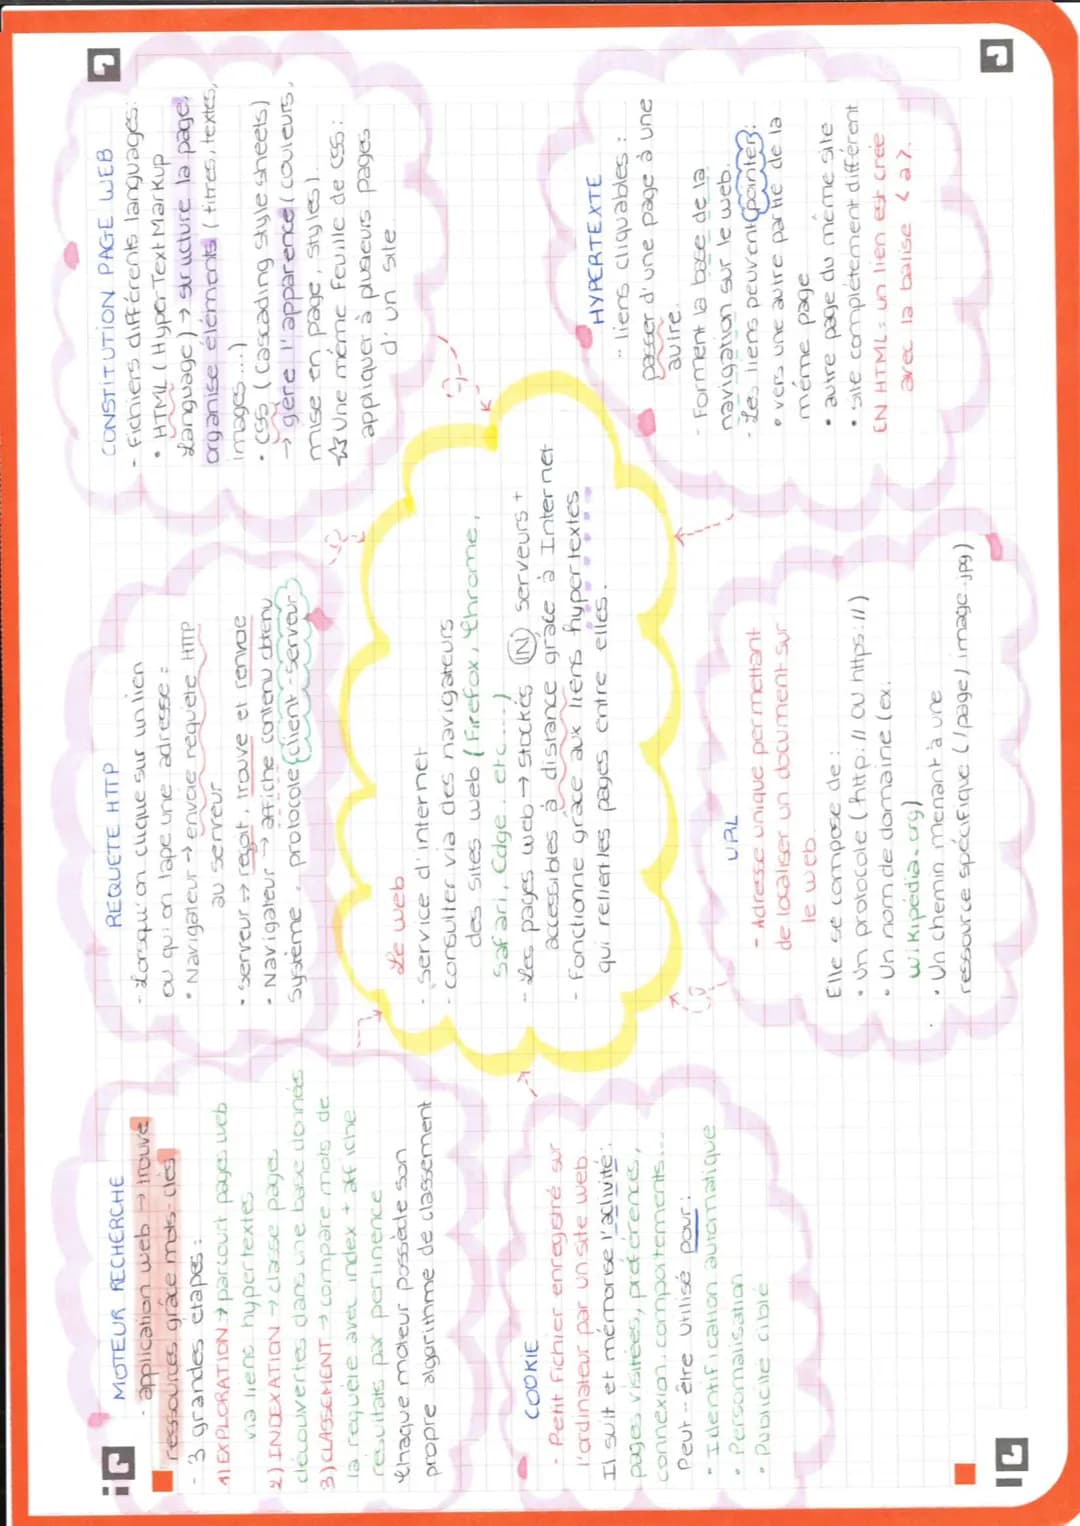 MOTEUR RECHERCHE
- application web → trouve
ressources grâce mots-clés
- 3 grandes étapes :
1) EXPLORATION → parcourt pages web
via liens hypertextes
2) INDEXATION → classe pages
découvertes dans une base donnés
3) CLASSEMENT → compare mots de
la requête avec index + affiche
resultats par pertinence
Chaque moteur possède son
propre algorithme de classement
REQUETE HTTP
- Lorsqu'on clique sur un lien
ou qu'on tape une adresse :
• Navigateur → envoie requête HTTP
au serveur
• Serveur → reçoit, trouve et renvoie
• Navigateur → affiche contenu obtenu
Système : protocole client-serveur
CONSTITUTION PAGE WEB
- Fichiers différents languages:
• HTML (HyperText Markup
Language) → structure la page,
organise éléments (titres, textes,
images...)
• CSS (cascading style sheets)
→ gère l'apparence (couleurs,
mise en page, styles).
☆ Une même feuille de CSS :
appliquer à plusieurs pages
d'un site
Le web
- Service d'internet
- consulter via des navigateurs
des sites web (Firefox, Chrome,
Safari, Edge, etc...)
- Les pages web → stockés IN serveurs +
accessibles à distance grâce à Internet
- Fonctionne grâce aux liens hypertextes
qui relient les pages entre elles.
COOKIE
- Petit fichier enregistré sur
l'ordinateur par un site web.
Il suit et mémorise l'activité:
pages visitées, préférences,
connexion, comportements...
Peut-être utilisé pour :
• Identification automatique
• Personalisation
• Publicité ciblé
URL
- Adresse unique permettant
de localiser un document sur
le web
Elle se compose de :
• Un protocole (http:// ou https://)
• Un nom de domaine (ex.
wikipédia.org)
• Un chemin menant à une
ressource spécifique (/page/image.jpg)
HYPERTEXTE
- liens cliquables :
passer d'une page à une
autre.
- Forment la base de la
navigation sur le web.
- Les liens peuvent pointer:
• vers une autre partie de la
même page
• autre page du même site
• site complètement différent
EN HTML: un lien est crée
avec la balise <a>.